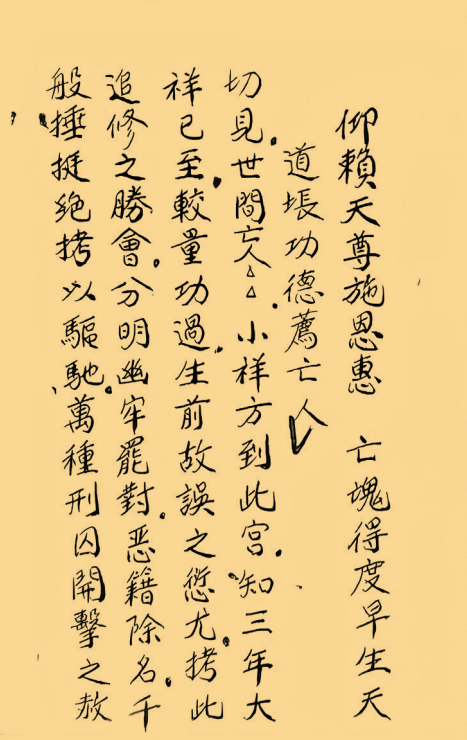 仰賴天尊施恩惠　亡魂得度早生天
道場功德薦亡人
切見。世間亡人△△。小祥方到此宮。知三年大
祥已至。較量功過。生前故誤之愆尤。拷此
追修之勝會。分明幽牢罷對。恶籍除名。千
般捶挺絶拷以驅馳。萬種刑囚開擊之赦